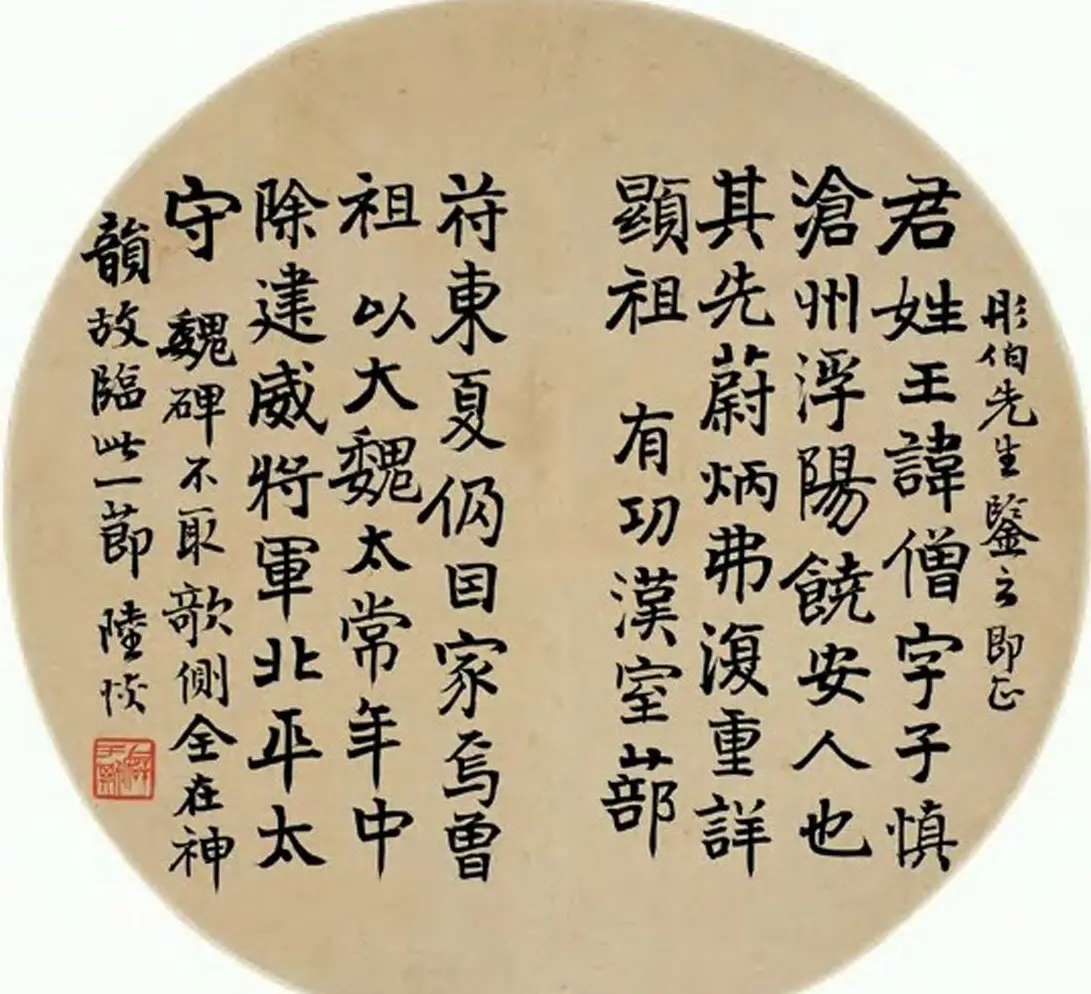 彤伯先生鑒之即正
君姓王諱僧字子慎
滄州浮陽饒安人也
其先蔚炳弗復重詳
顯祖有功漢室蔀
苻東夏仍囯家焉曾
祖以大魏太常年中
除建威將軍北平太
守魏碑不取欹側全在神
韻故臨此一節陸恢